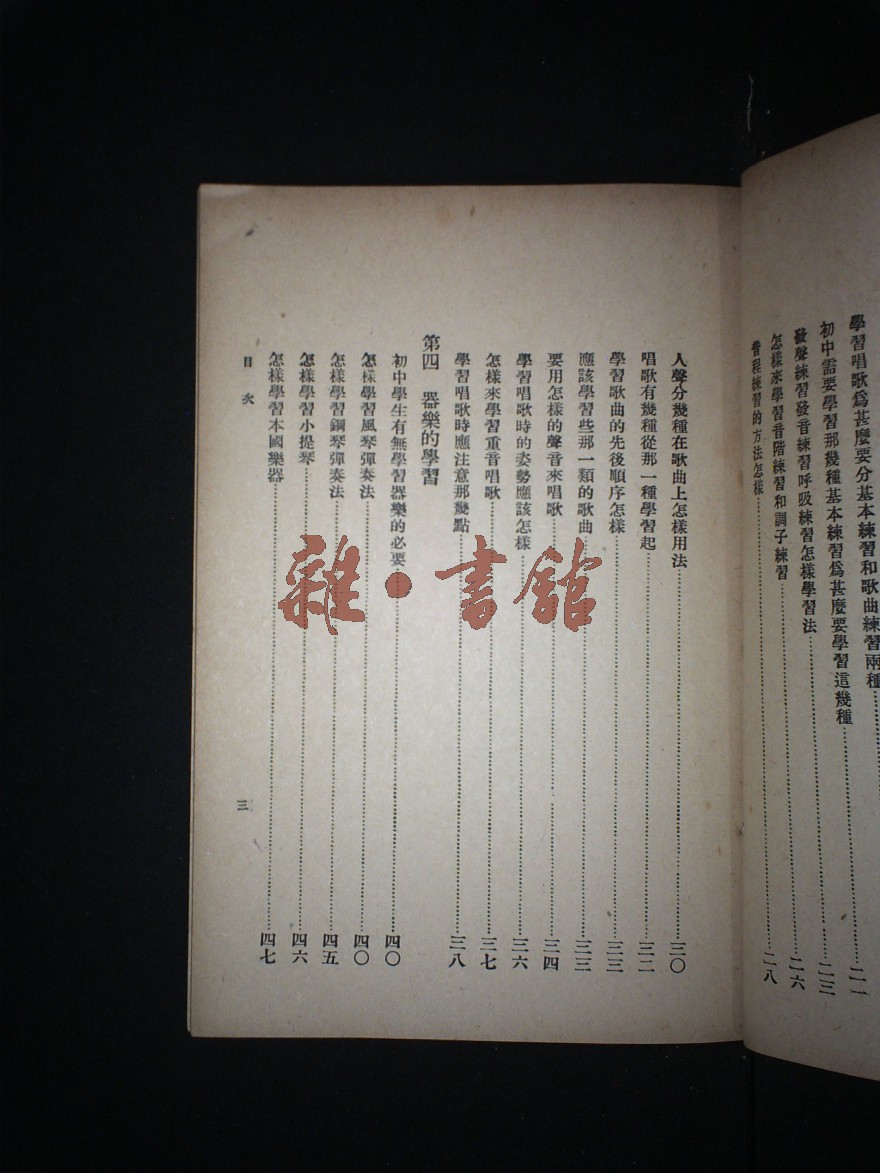 學習唱歌爲甚麼要分基本練習和歌曲練習兩種……二一
初中需要學習那幾種基本練習爲甚麼要學習這幾種……二三
發聲練習發音練習呼吸練習怎樣學習法……二六
怎樣來學習音階練習和調子練習……二八
音程練習的方法怎樣
人聲分幾種在歌曲上怎樣用法……三〇
唱歌有幾種從那一種學習起……三二
學習歌曲的先後順序怎樣……三三
應該學習些那一類的歌曲……三三
要用怎樣的聲音來唱歌……三四
學習唱歌時的姿勢應該怎樣……三六
怎樣來學習重音唱歌……三七
學習唱歌時應注意那幾點……三八
第四 器樂的學習
初中學生有無學習器樂的必要……四〇
怎樣學習風琴彈奏法……四〇
怎樣學習鋼琴彈奏法……四五
怎樣學習小提琴……四六
怎樣學習本國樂器……四七
目次
三
雜·書館